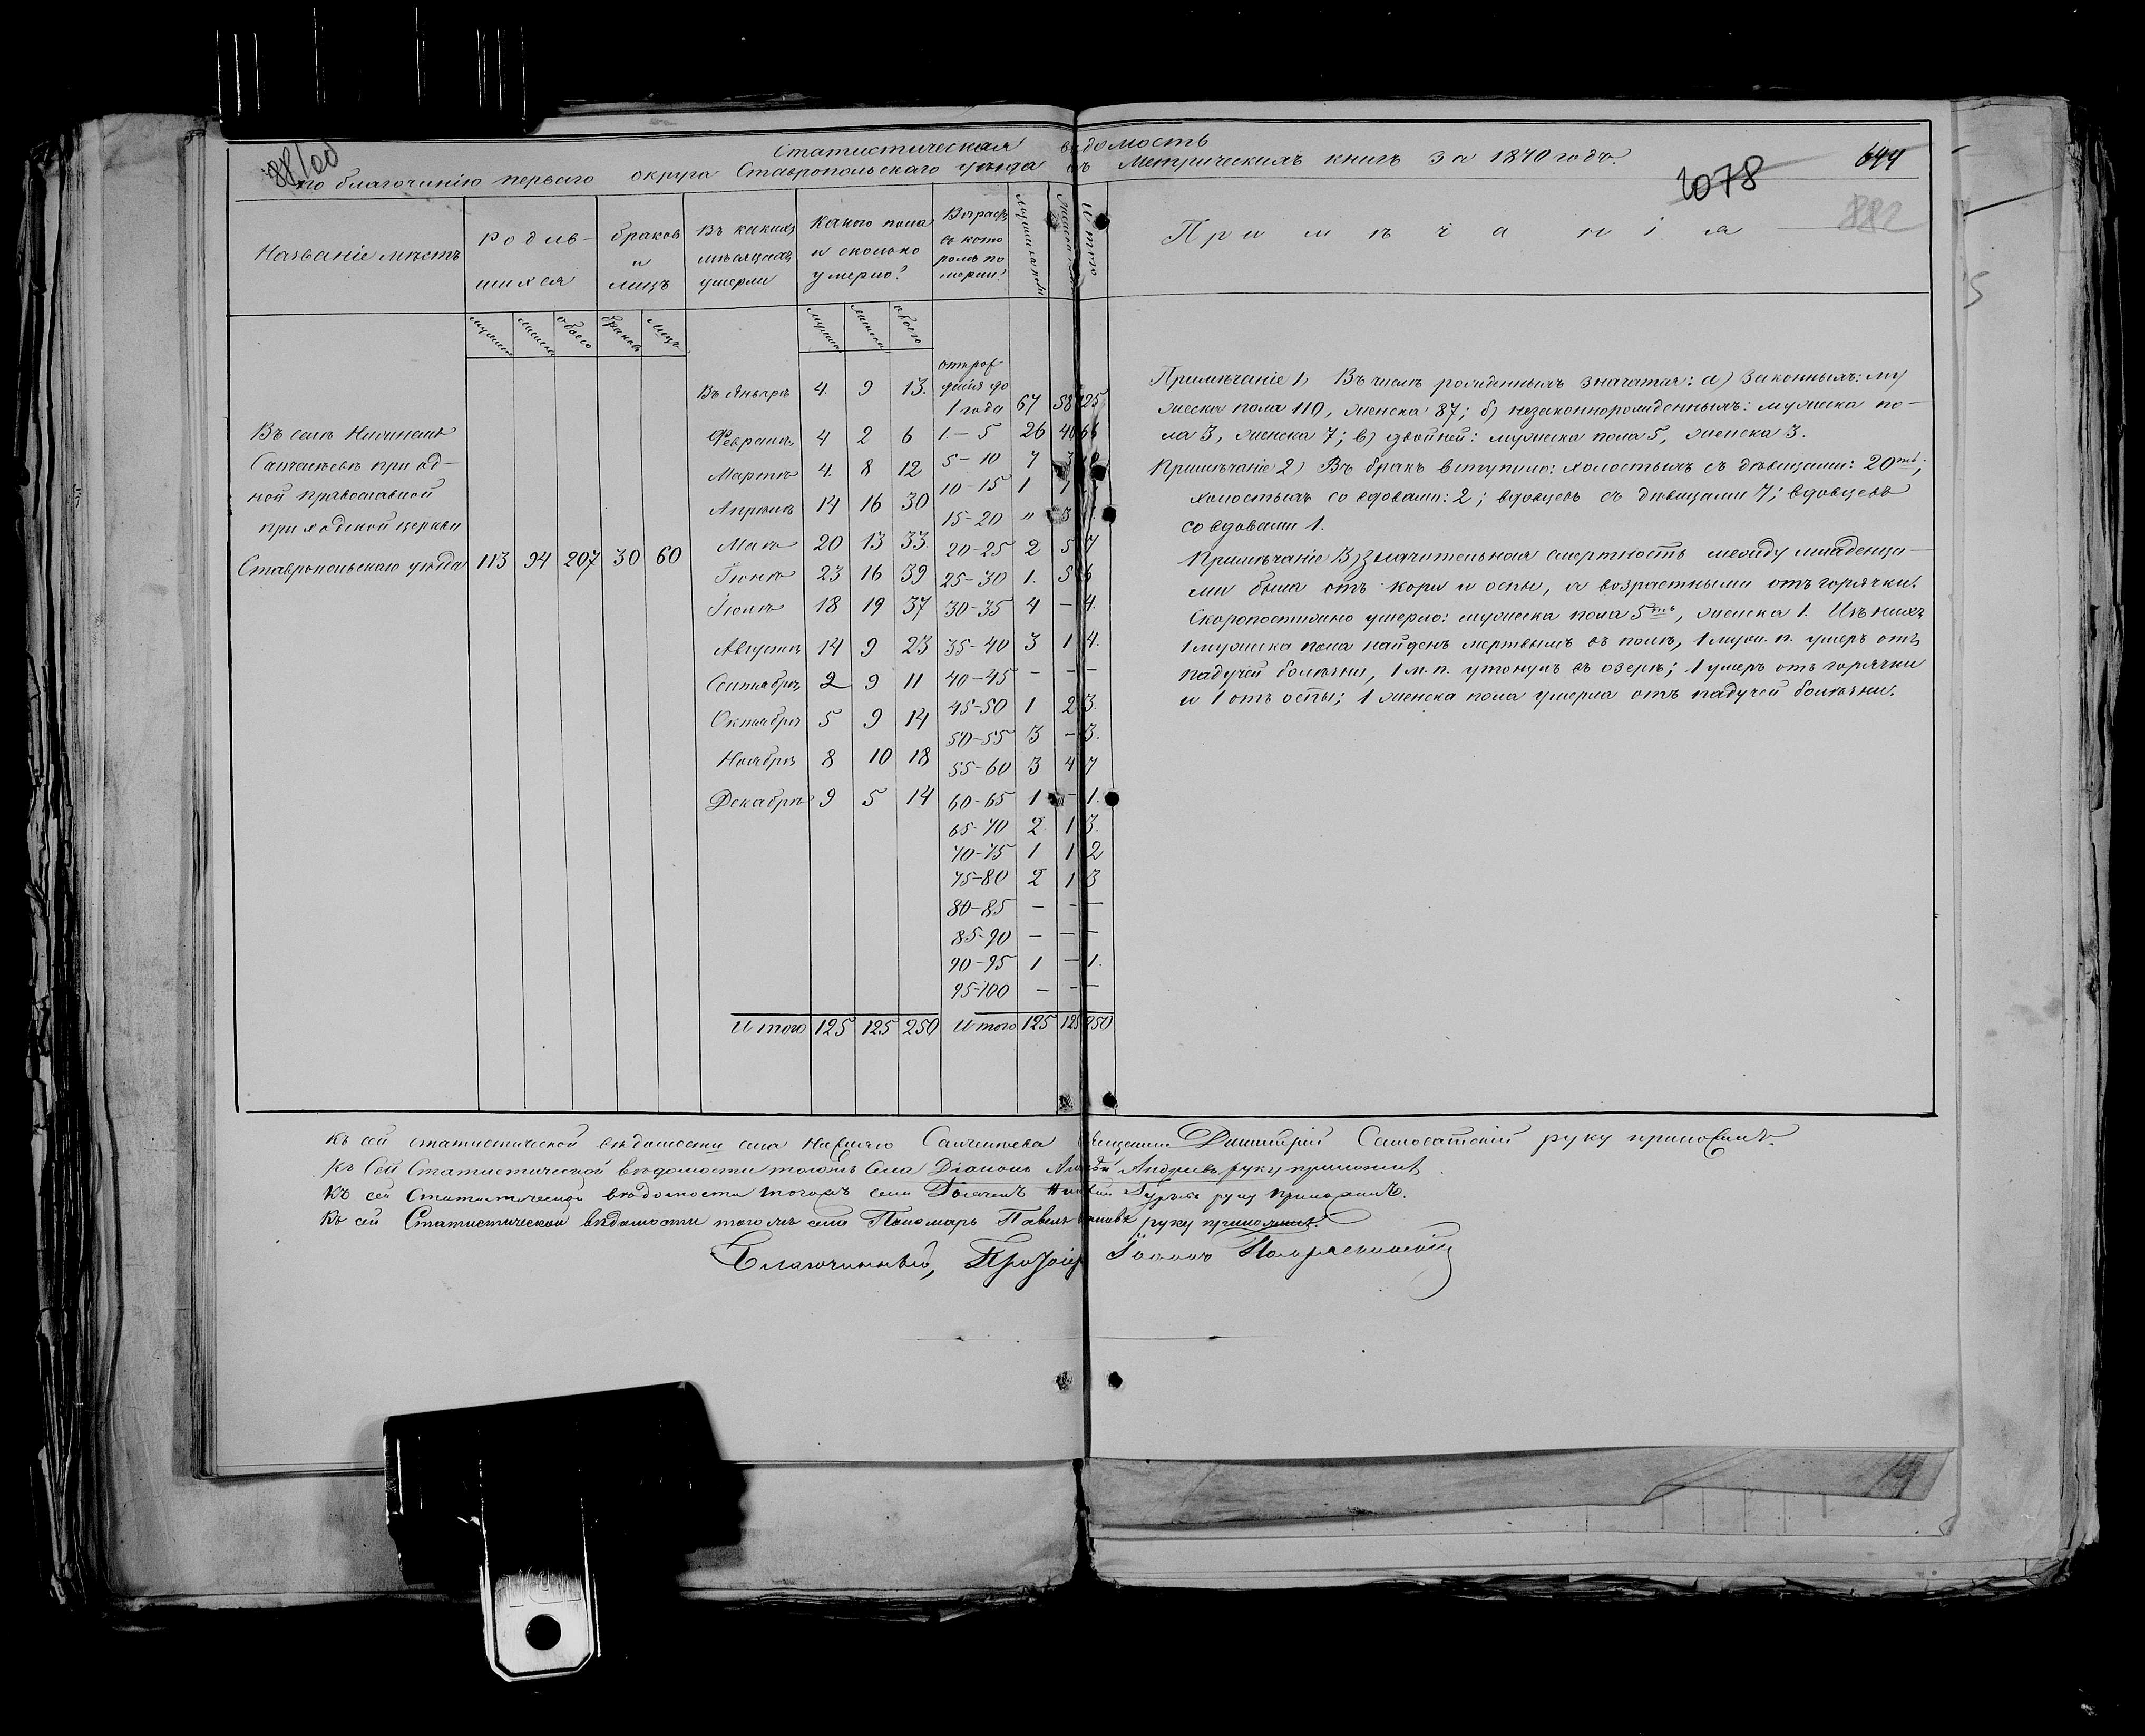 Статистическая вѣдомость
по благочинію перваго округа Ставропольскаго уѣзда съ Метрическихъ книгъ за 1870 годъ.
88/00
1078
644
882
Названіе мѣстъ
Родив-
шихся
браковъ
и
лицъ
Въ какихъ
мѣсяцахъ
умерли
Какого пола
и сколько
умерло?
Возрастъ
въ кото
ромъ по
мерли?
Мужска пола
Итого
Примѣчанія
мужска
женска
обоего
браковъ
лицъ
мужска
женска
обоего
Въ селѣ
Санчелѣевѣ при од-
ной православной
приходской церкви
Ставропольскаго уѣзда 113 94 207 30 60
Въ Январѣ 4. 9 13.
Февралѣ 4 2 6
Мартѣ 4. 8 12
Апрѣлѣ 14 16 30
Маѣ 20 13 33.
Іюнѣ 23 16 39
Іюлѣ 18 19 37
Августѣ 14 9 23
Сентябрѣ 2 9 11
Октябрѣ 5 9 14
Ноябрѣ 8 10 18
Декабрѣ 9 5 14
Итого 125 125 250
отъ рож-
денія до
1 года 67 58 125
1.–5 26 40 66
5–10 7 3
10–15 1 1
15–20 " 3
20–25 2 5 7
25–30 1. 5 6
30–35 4 – 4.
35–40 3 1 4.
40–45 – – –
45–50 1 2 3.
50–55 3 – 3.
55–60 3 4 7
60–65 1 – 1.
65–70 2 1 3.
70–75 1 1 2
75–80 2 1 3
80–85 – – –
85–90 – – –
90–95 1 – 1.
95–100 – – –
Итого 125 125 250
Примѣчаніе 1) Въ числѣ рожденныхъ значатся: а) Законныхъ: му
жеска пола 110, женска 87; б) незаконнорожденныхъ: мужеска по-
ла 3, женска 7; в) двойней: мужеска пола 5, женска 3.
Примѣчаніе 2) Въ бракъ вступило: холостыхъ съ дѣвицами: 20ть;
холостыхъ со вдовами: 2; вдовцевъ съ дѣвицами 7; вдовцевъ
со вдовами 1.
Примѣчаніе 3) Значительная смертность между младенца-
ми была отъ кори и оспы, а возрастными отъ горячки.
Скоропостижно умерло: мужеска пола 5ть, женска 1. Изъ нихъ
1 мужеска пола найденъ мертвымъ въ полѣ, 1 муж. п. умеръ отъ
падучей болѣзни, 1 м. п. утонулъ въ озерѣ; 1 умеръ отъ горячки
и 1 отъ оспы; 1 женска пола умерла отъ падучей болѣзни.
Къ сей статистической вѣдомости села Санчелѣева Священникъ Димитрій Самосатскій руку приложилъ.
Къ сей Статистической вѣдомости тогожъ села Діаконъ Андреевъ руку приложилъ
Къ сей Статистической вѣдомости тогожъ села Дьячекъ Гурьевъ руку приложилъ.
Къ сей Статистической вѣдомости тогожъ села Пономарь Павелъ руку приложилъ.
Благочинный, Протоіер Іоаннъ